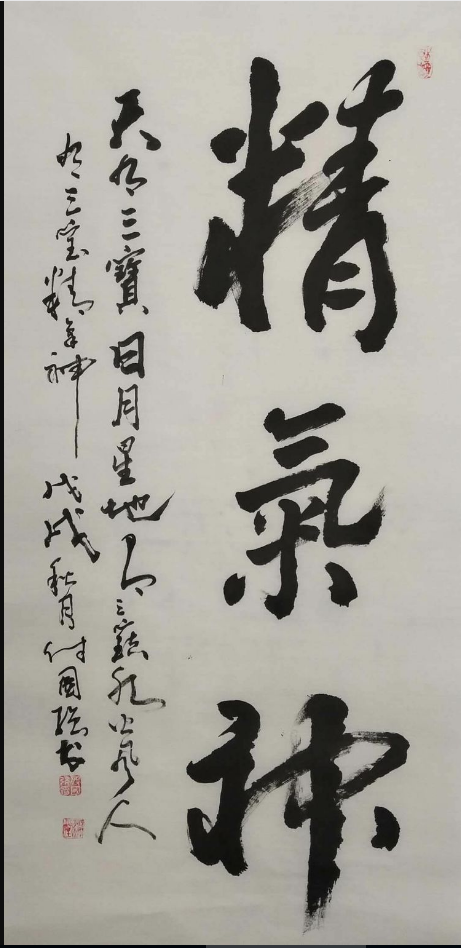 精氣神
天有三寶日月星地有三寶水火風人
有三宝精氣神戊戌秋月付國強书